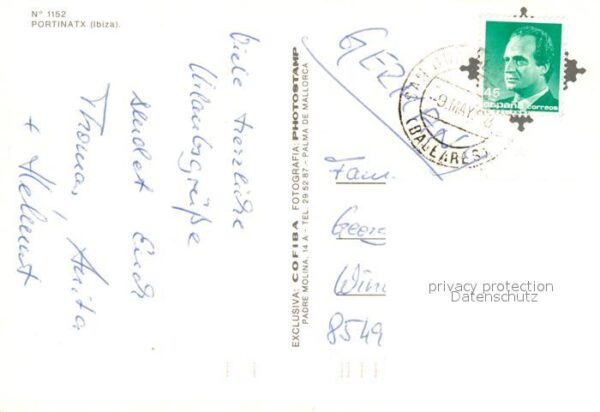 Nº 1152
PORTINATX (Ibiza).
Viele herzliche
Urlaubsgrüße
sendet Euch
Thomas, Anita
+ Helmut
EXCLUSIVA: COFIBA FOTOGRAFIA: PHOTOSTAMP
PADRE MOLINA, 14 A - TEL. 29 52 87 - PALMA DE MALLORCA
GERMANY
45
españa correos
SAN
-9 MAY
(BALEARES)
Fam.
Georg
8549
privacy protection
Datenschutz